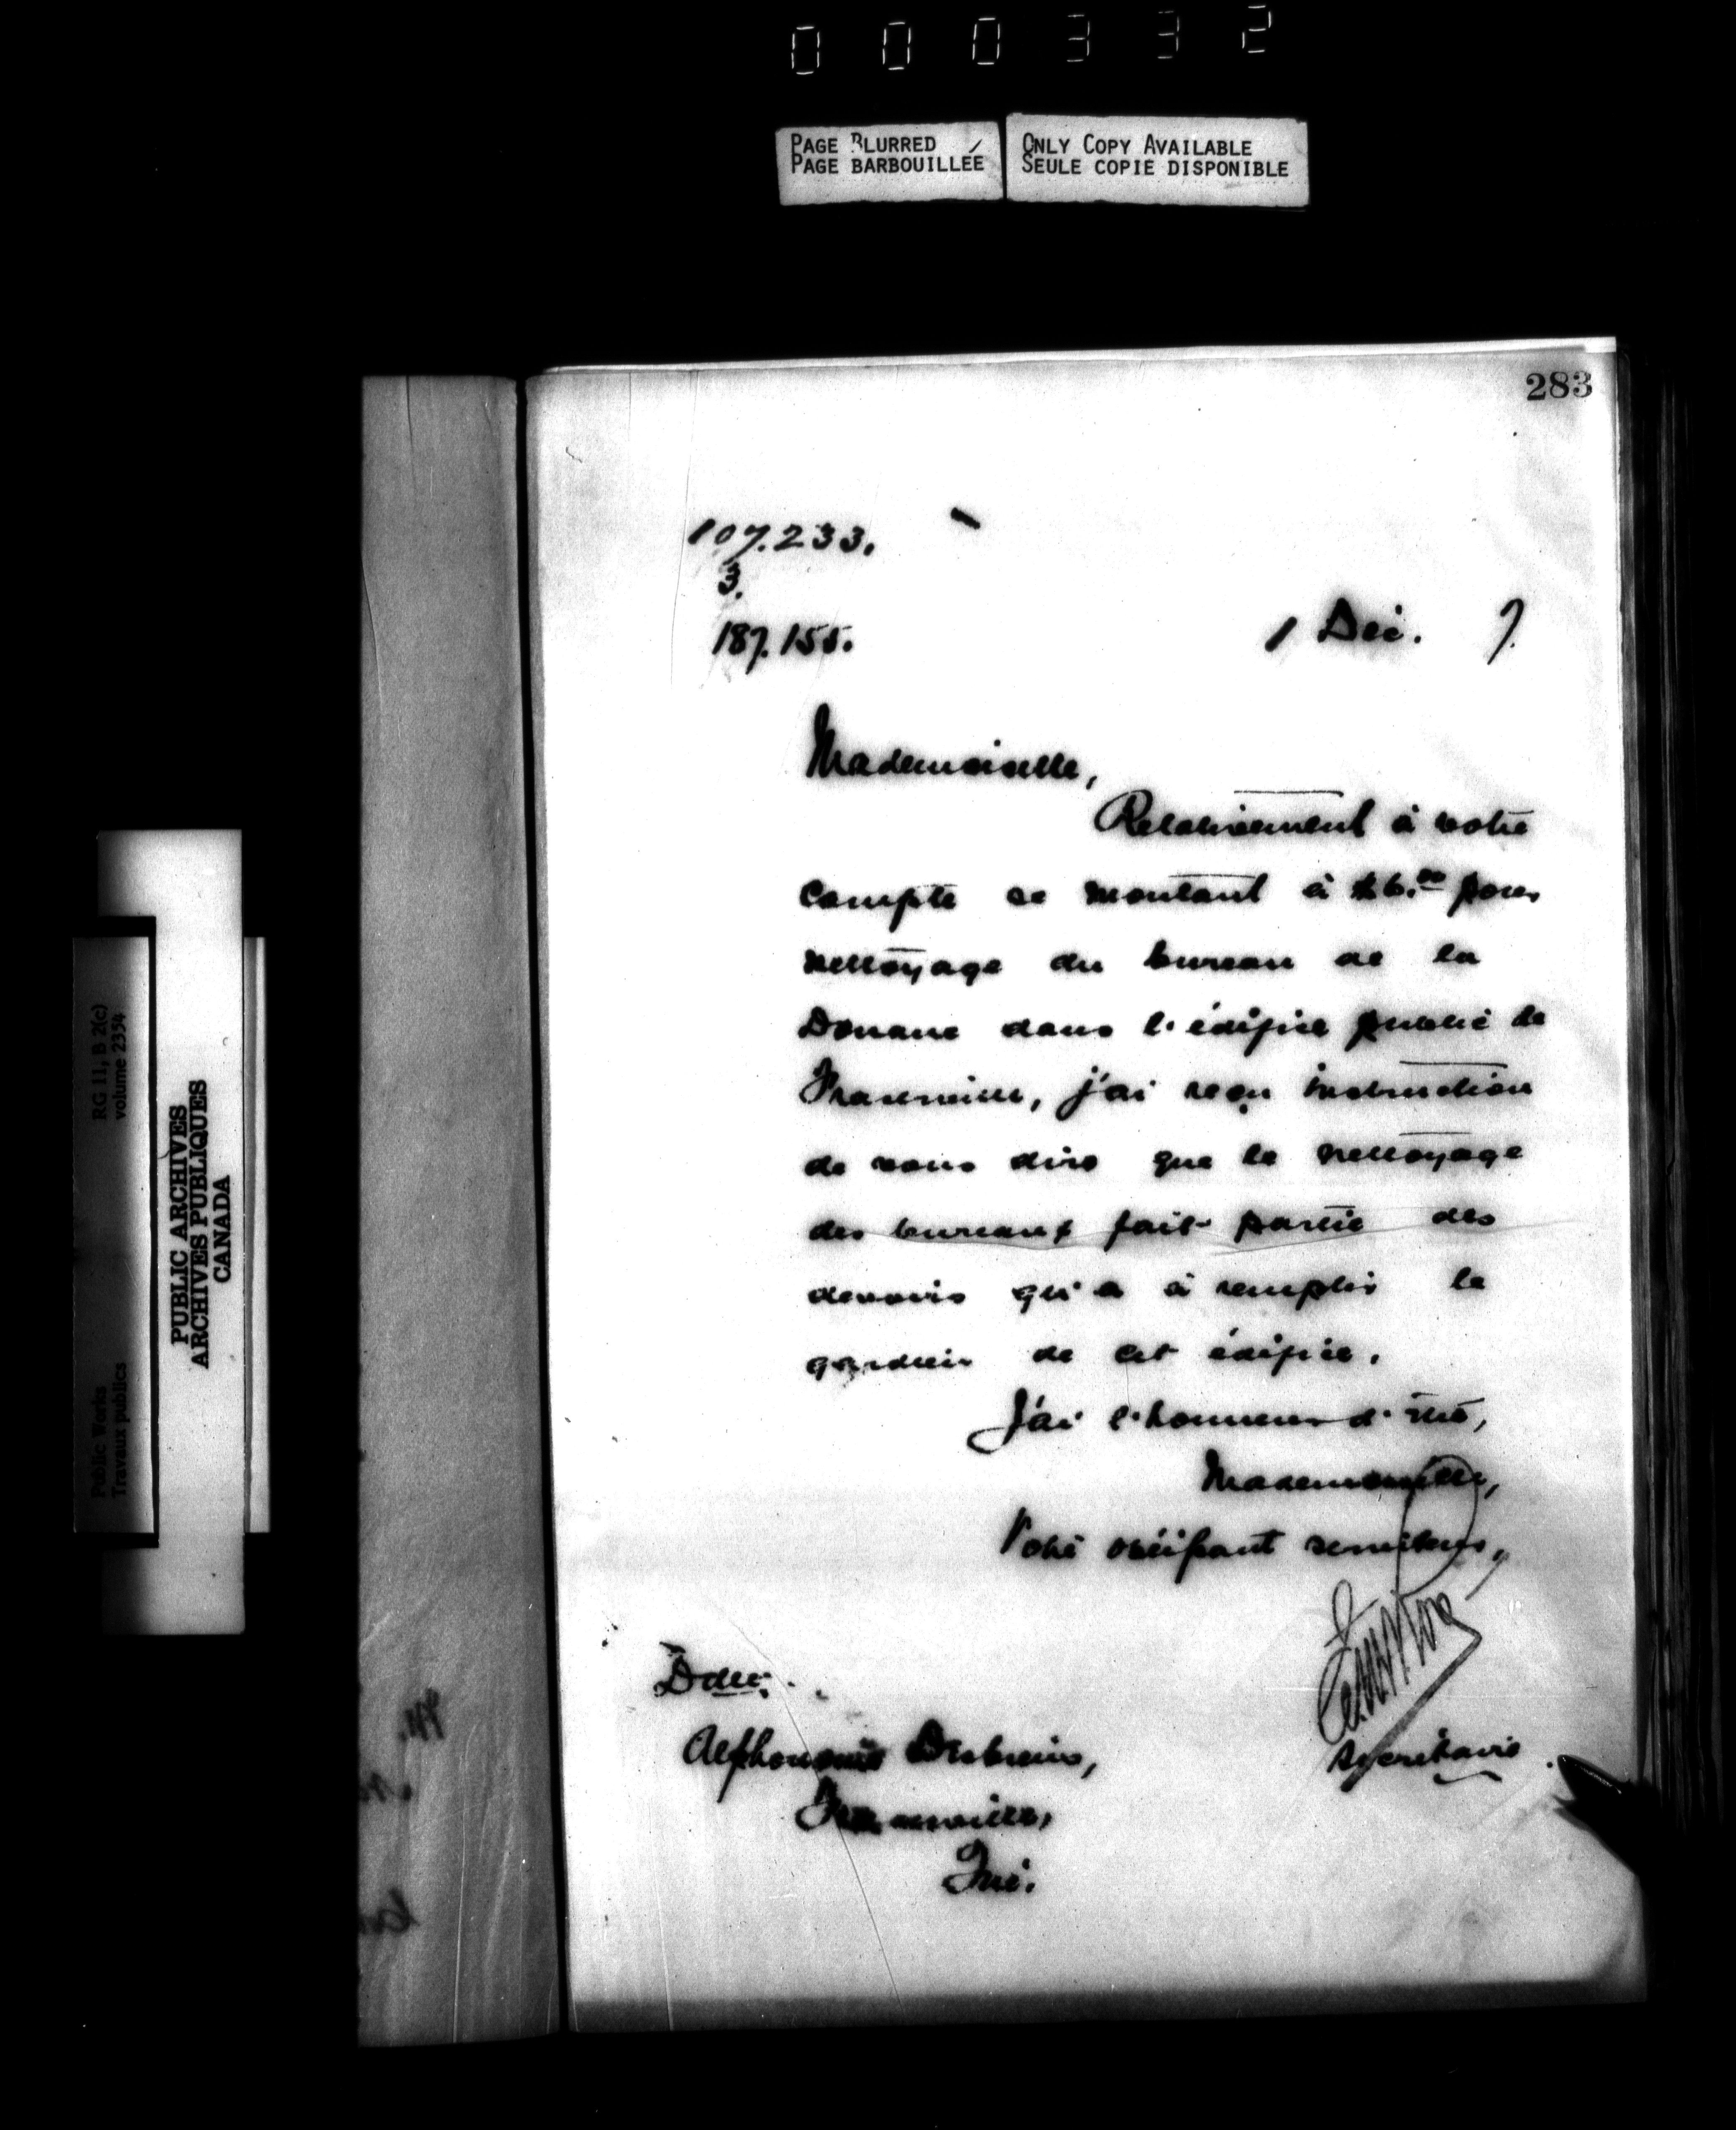 000332
PAGE BLURRED
PAGE BARBOUILLÉE
ONLY COPY AVAILABLE
SEULE COPIE DISPONIBLE
283
107.233.
3.
187.155.
1 Dec. 7.
Mademoiselle,
Relativement à votre
compte se montant à $6.00 pour
nettoyage du bureau de la
Douane dans l'édifice public de
Fraserville, j'ai reçu instruction
de vous dire que le nettoyage
des bureaux fait partie des
devoirs qu'a à remplir le
gardien de cet édifice.
J'ai l'honneur d'être,
Mademoiselle,
Votre obéissant serviteur,
Secrétaire
Dlle
Alphonsine
Fraserville,
Qué.
RG 11, B 2(c)
volume 2354
Public Works
Travaux publics
PUBLIC ARCHIVES
ARCHIVES PUBLIQUES
CANADA